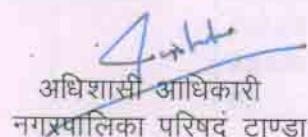 अधिशासी अधिकारी
नगरपालिका परिषद टाण्डा